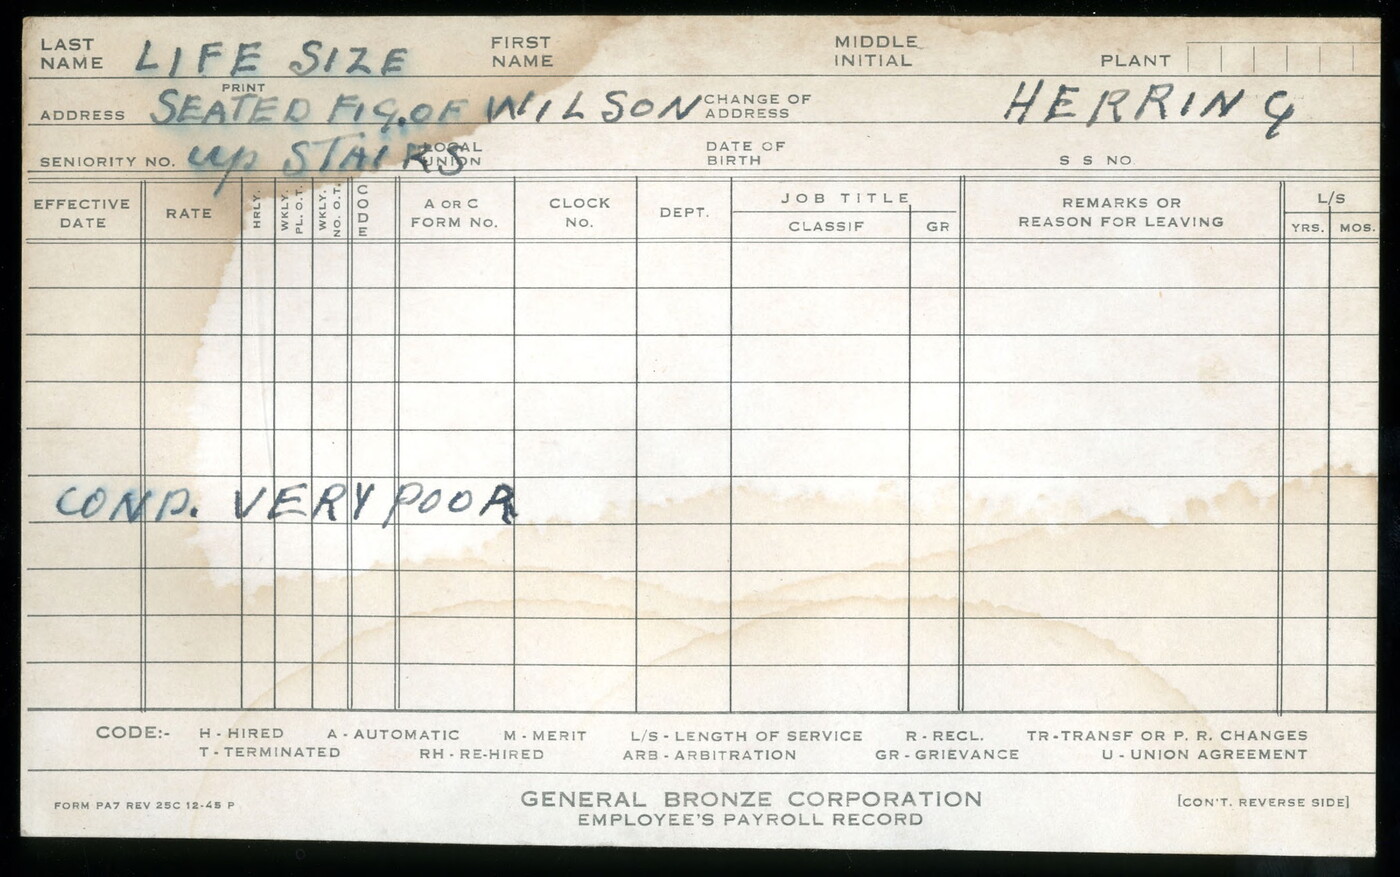 LAST NAME LIFE SIZE FIRST NAME MIDDLE INITIAL PLANT
PRINT
ADDRESS SEATED FIG. OF WILSON CHANGE OF ADDRESS HERRING
SENIORITY NO. up STAIRS LOCAL UNION DATE OF BIRTH S S NO.
EFFECTIVE DATE RATE HRLY. WKLY. PL. O.T. WKLY. NO. O.T. CODE A OR C FORM NO. CLOCK NO. DEPT. JOB TITLE CLASSIF GR REMARKS OR REASON FOR LEAVING L/S YRS. MOS.
COND. VERY POOR
CODE:- H - HIRED A - AUTOMATIC M - MERIT L/S - LENGTH OF SERVICE R - RECL. TR-TRANSF OR P. R. CHANGES
T - TERMINATED RH - RE-HIRED ARB - ARBITRATION GR - GRIEVANCE U - UNION AGREEMENT
FORM PA7 REV 25C 12-45 P GENERAL BRONZE CORPORATION [CON'T. REVERSE SIDE]
EMPLOYEE'S PAYROLL RECORD